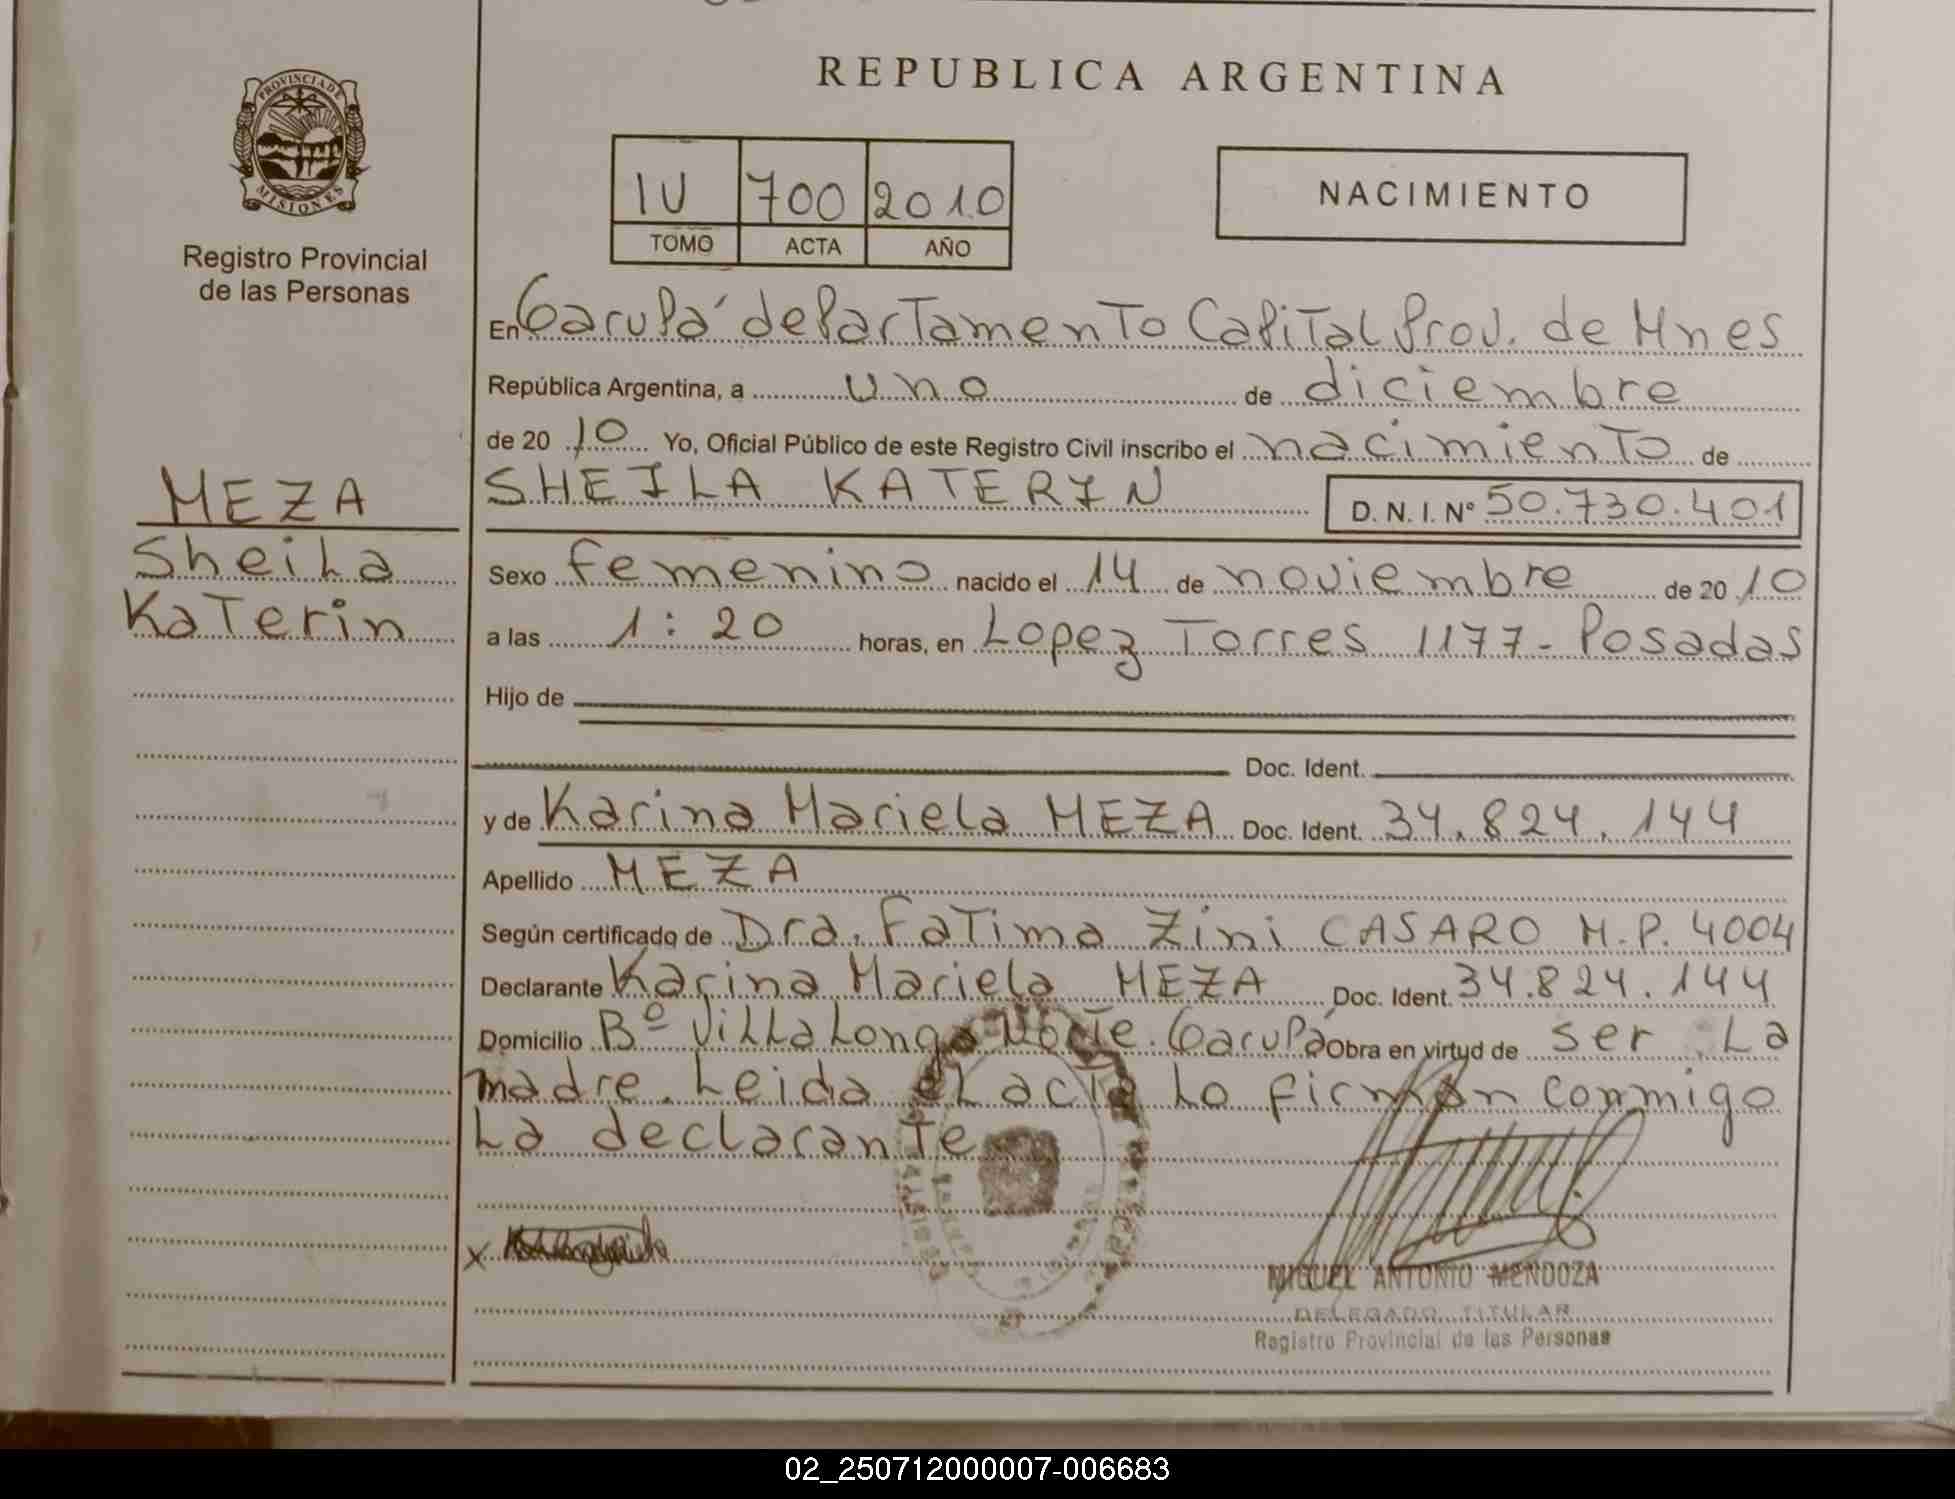 REPUBLICA ARGENTINA
PROVINCIA DE MISIONES
Registro Provincial
de las Personas
IV 700 2010
TOMO ACTA AÑO
NACIMIENTO
MEZA
Sheila
Katerin
En Garupá departamento Capital Prov. de Mnes
República Argentina, a uno de diciembre
de 20 10 Yo, Oficial Público de este Registro Civil inscribo el nacimiento de
SHEILA KATERIN D. N. I. Nº 50.730.401
Sexo femenino nacido el 14 de noviembre de 20 10
a las 1:20 horas, en Lopez Torres 1177 - Posadas
Hijo de
Doc. Ident.
y de Karina Mariela MEZA Doc. Ident. 34.824.144
Apellido MEZA
Según certificado de Dra. Fatima Zini CASARO M.P. 4004
Declarante Karina Mariela MEZA Doc. Ident. 34.824.144
Domicilio Bº Villa Longa Norte. Garupá Obra en virtud de ser La
madre. Leida el acta Lo firman conmigo
La declarante
x
MIGUEL ANTONIO MENDOZA
DELEGADO TITULAR
Registro Provincial de las Personas
02_250712000007-006683